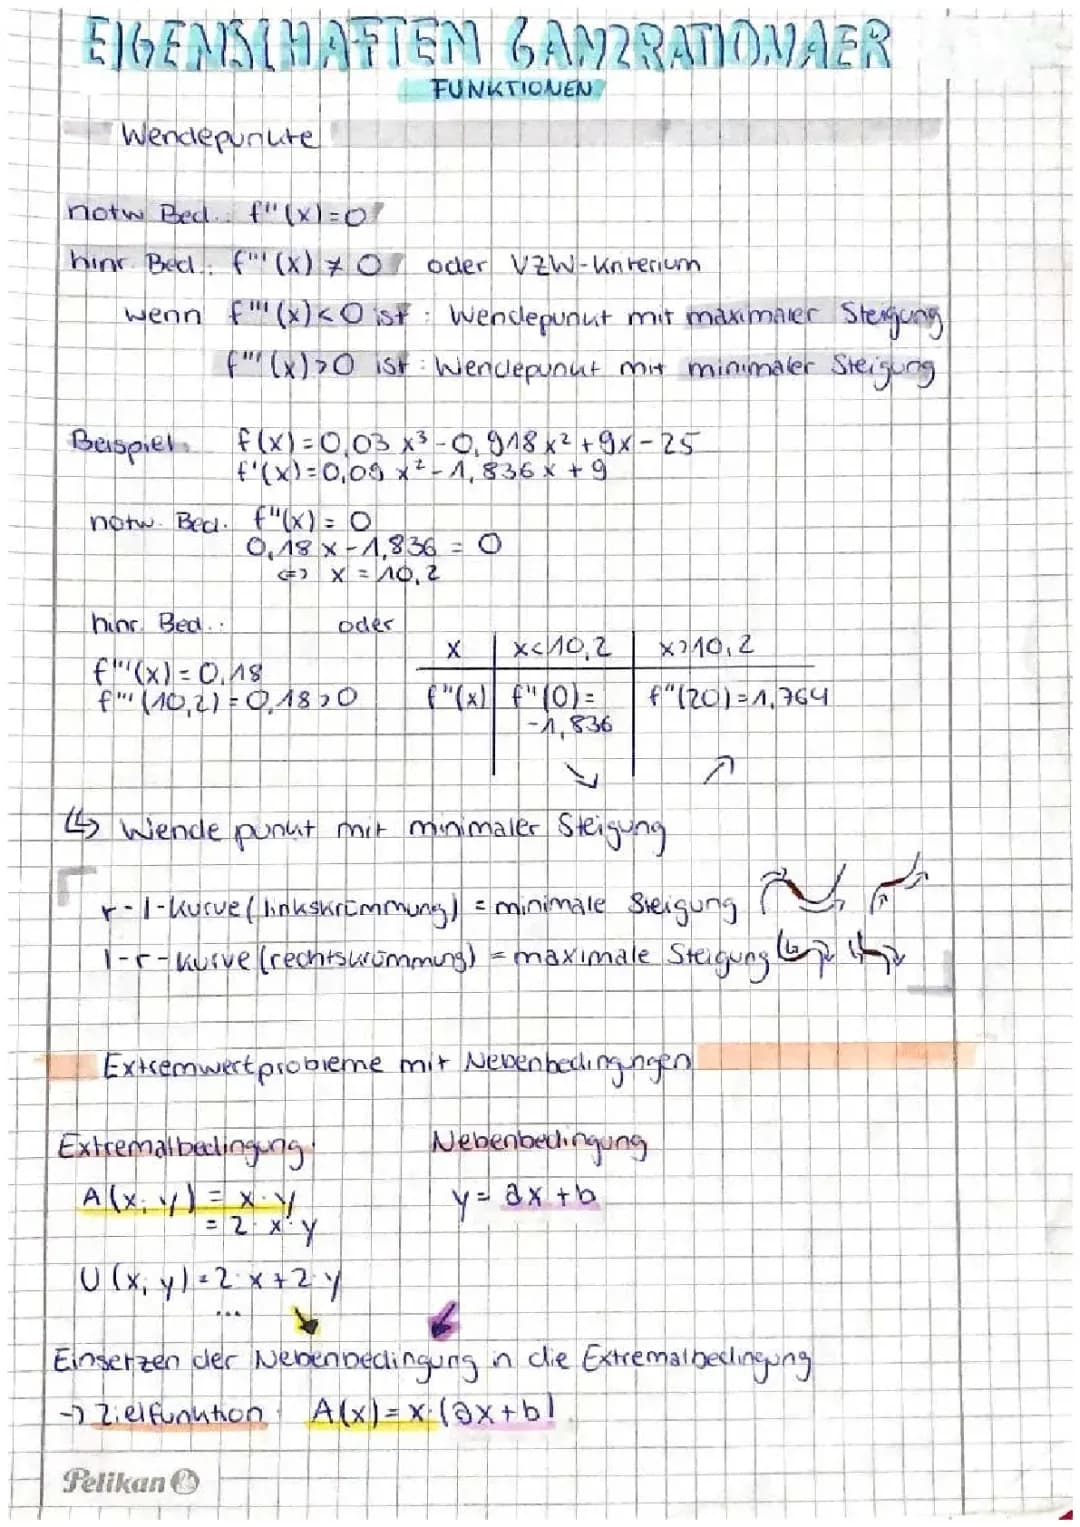 EIGENSCHAFTEN GANZRATIONAER
FUNKTIONEN
Wendepunkte
notw Bed.: f''(x)=0
hinr. Bed.: f'''(x) ≠ 0 oder VZW-Kriterium
wenn f'''(x)<0 ist : Wendepunkt mit maximaler Steigung
f'''(x)>0 ist : Wendepunkt mit minimaler Steigung
Beispiel: f(x)=0,03 x³-0,918x²+9x-25
f'(x)=0,09 x²-1,836x+9
notw. Bed. f''(x)=0
0,18x-1,836=0
<=> x=10,2
hinr. Bed.: oder
x | x<10,2 | x>10,2
f'''(x)=0,18
f'''(10,2)=0,18>0
f''(x) | f''(0)= | f''(20)=1,764
-1,836
↘ ↗
↳ Wendepunkt mit minimaler Steigung
r-l-Kurve (linkskrümmung) = minimale Steigung
l-r-Kurve (rechtskrümmung) = maximale Steigung
Extremwertprobleme mit Nebenbedingungen
Extremalbedingung: Nebenbedingung
A(x; y) = x·y y= ax+b
= 2·x·y
U(x; y)=2·x+2·y
...
Einsetzen der Nebenbedingung in die Extremalbedingung
→ Zielfunktion: A(x)=x·(ax+b)
Pelikan